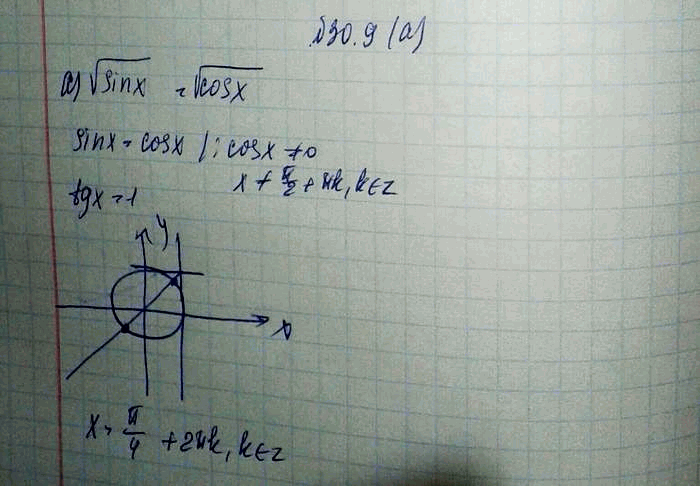 №30.9 (а)
а) √sinx = √cosx
sinx = cosx | : cosx ≠ 0
tgx = 1
x ≠ π/2 + πk, k∈Z
y
x
x = π/4 + 2πk, k∈Z